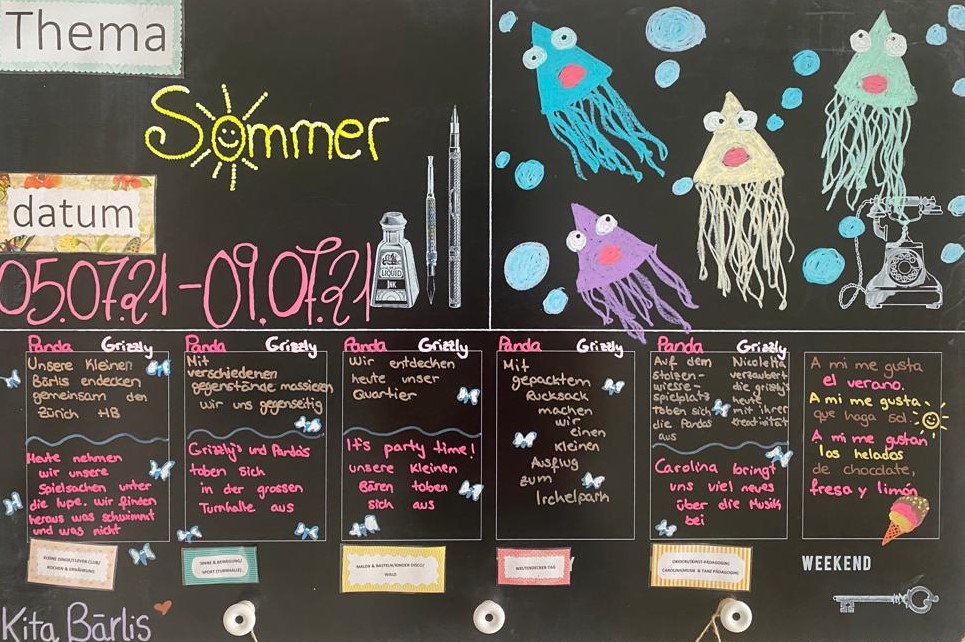 Thema
Sommer
datum
05.07.21-09.07.21
LIQUID
INK
Panda Grizzly
Unsere Kleinen
Bärlis endecken
gemeinsam den
Zürich HB
Heute nehmen
wir unsere
Spielsachen unter
die lupe. wir finden
heraus was schwimmt
und was nicht
KLEINE DINGE/CLEVER CLUB/
KOCHEN & ERNÄHRUNG
Panda Grizzly
Mit
verschiedenen
gegenstände massieren
wir uns gegenseitig
Grizzly's und Panda's
toben sich
in der grossen
Turnhalle aus
SINNE & BEWEGUNG/
SPORT (TURNHALLE)
Panda Grizzly
Wir entdecken
heute unser
Quartier
It's party time!
unsere Kleinen
Bären toben
sich aus
MALEN & BASTELN/KINDER DISCO/
WALD
Panda Grizzly
Mit
gepacktem
Rucksack
machen
wir
einen
kleinen
Ausflug
zum
Irchelpark
WELTENTDECKER-TAG
Panda Grizzly
Auf dem
Stolzen-
wiese-
spielplatz
toben sich
die Pandas
aus
Nicoletta
verzaubert
die grizzly's
heute
mit ihrer
kreativität
Carolina bringt
uns viel neues
über die Musik
bei
A mi me gusta
el verano.
A mi me gusta
que haga sol.
A mi me gustan
los helados
de chocolate,
fresa y limón
WEEKEND
Kita Bärlis